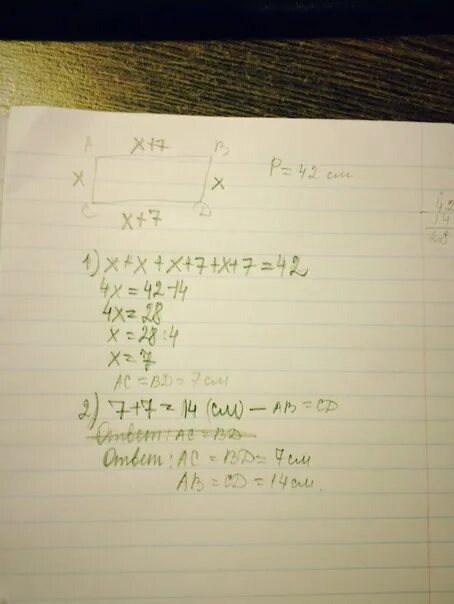 A x+7 B
x x P = 42 см
C x+7 D
- 42
14
28
1) x + x + x + 7 + x + 7 = 42
4x = 42 - 14
4x = 28
x = 28 : 4
x = 7
AC = BD = 7 см
2) 7 + 7 = 14 (см) - AB = CD
Ответ: AC = BD
Ответ: AC = BD = 7 см
AB = CD = 14 см.